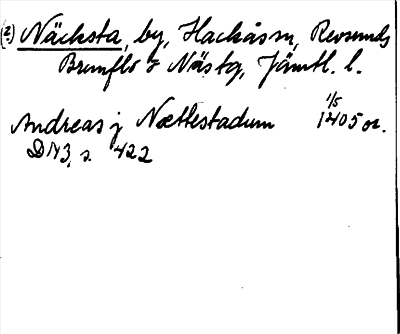 (2.) Näcksta, by, Hackås sn, Revsunds
Brunflo o Näs tg, Jämtl. l.
Andreas j Nættestadum 1/5 1405 or.
DN3, s. 422